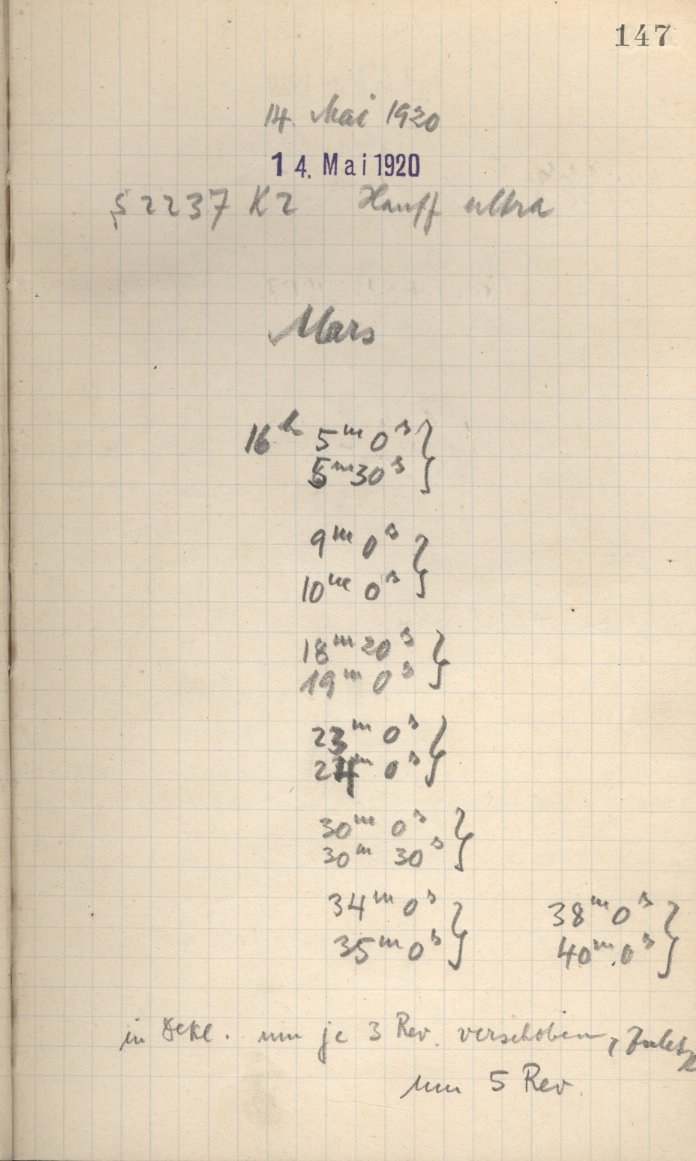 147
14. Mai 1920
14. Mai 1920
S 2237 K2 Hauff ultra
Mars
16h 5m 0s }
5m 30s }
9m 0s }
10m 0s }
18m 20s }
19m 0s }
23m 0s }
24m 0s }
30m 0s }
30m 30s }
34m 0s }
35m 0s }
38m 0s }
40m 0s }
in Dekl. um je 3 Rev. verschoben, zuletzt
um 5 Rev.